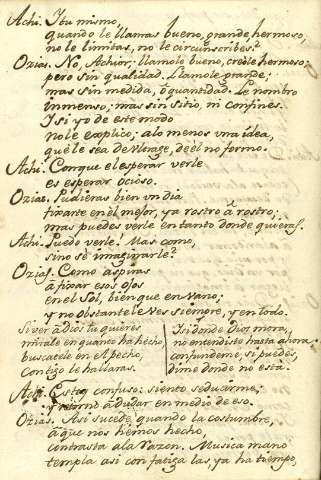 Achi. I tu mismo,
quando le llamas bueno, grande, hermoso,
no le limitas, no le circunscribes?
Ozias. No, Achior; llamole bueno, creole hermoso;
pero sin qualidad. Llamole grande;
mas sin medida, ò quantidad. Le nombro
immenso; mas sin sitio, ni confines.
I si yo de este modo
no le explico; alo menos una idea,
que le sea de ultrage, de èl no formo.
Achi. Conque el esperar verle
es esperar ocioso.
Ozias. Pudieras bien un dia
fixarte en èl mejor, ya rostro à rostro;
mas puedes verle en tanto donde quieras.
Achi. Puedo verle? Mas como,
sino sè imaginarle?
Ozias. Como aspiras
à fixar esos ojos
en el Sol, bien que en vano;
y no obstante le ves siempre, y en todo.
Si ver à Dios tu quieres
mirale en quanto ha hecho,
buscatele en el pecho
Contigo le hallaras.
I si donde Dios mora,
no entendiste hasta ahora,
confundeme, si puedes,
dime donde no està.
Achi. Estoy confuso: siento seducirme;
y retorno à dudar en medio de eso.
Ozias. Asi sucede, quando la costumbre,
à que nos hemos hecho
contrasta à la razon. Musica mano
templa asi con fatiga las, ya ha tiempo,